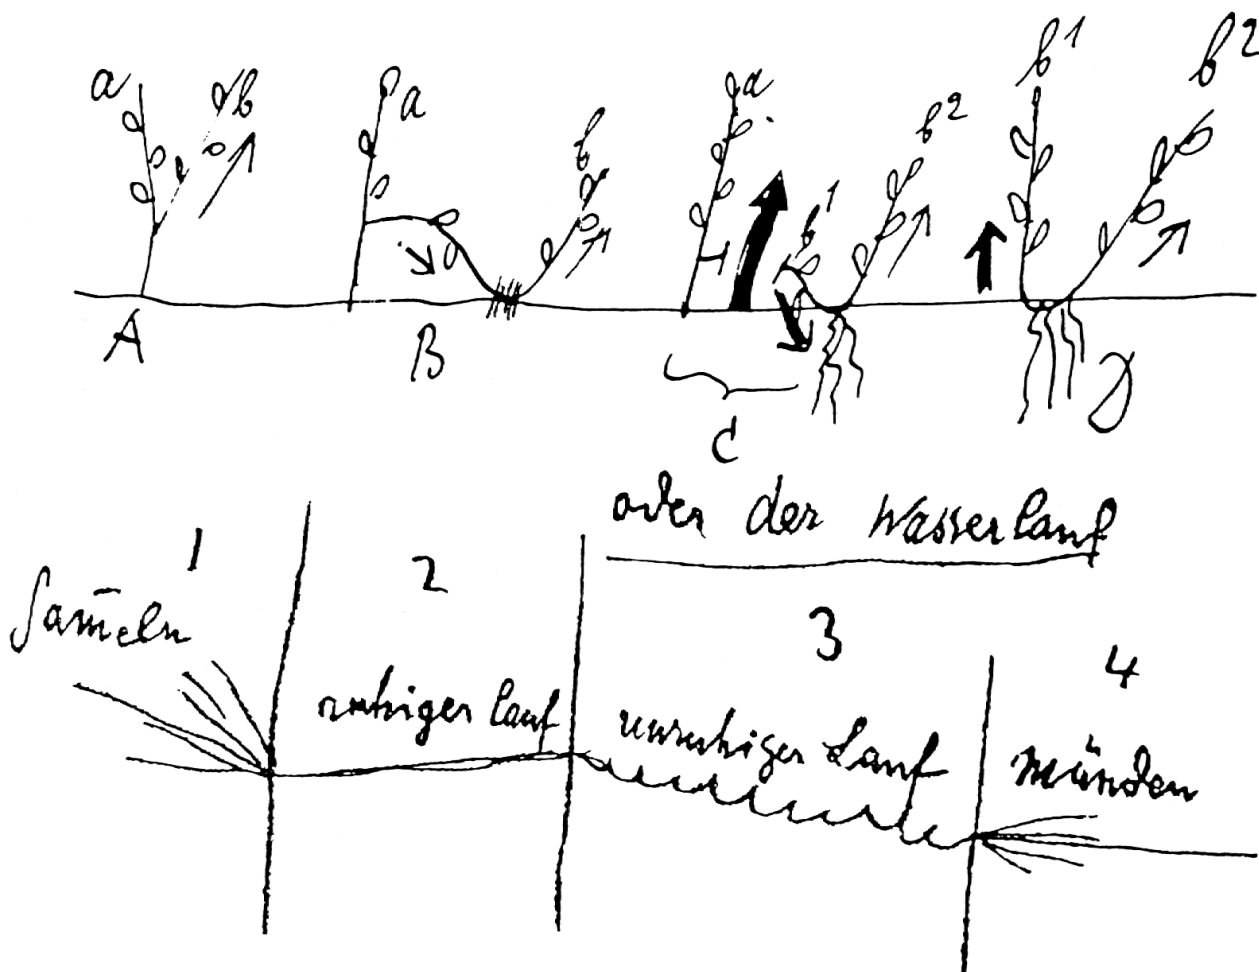 a b a b a b¹ b² b¹ b²
A B C D
oder der Wasserlauf
1 2 3 4
Sam̄eln ruhiger Lauf unruhiger Lauf münden